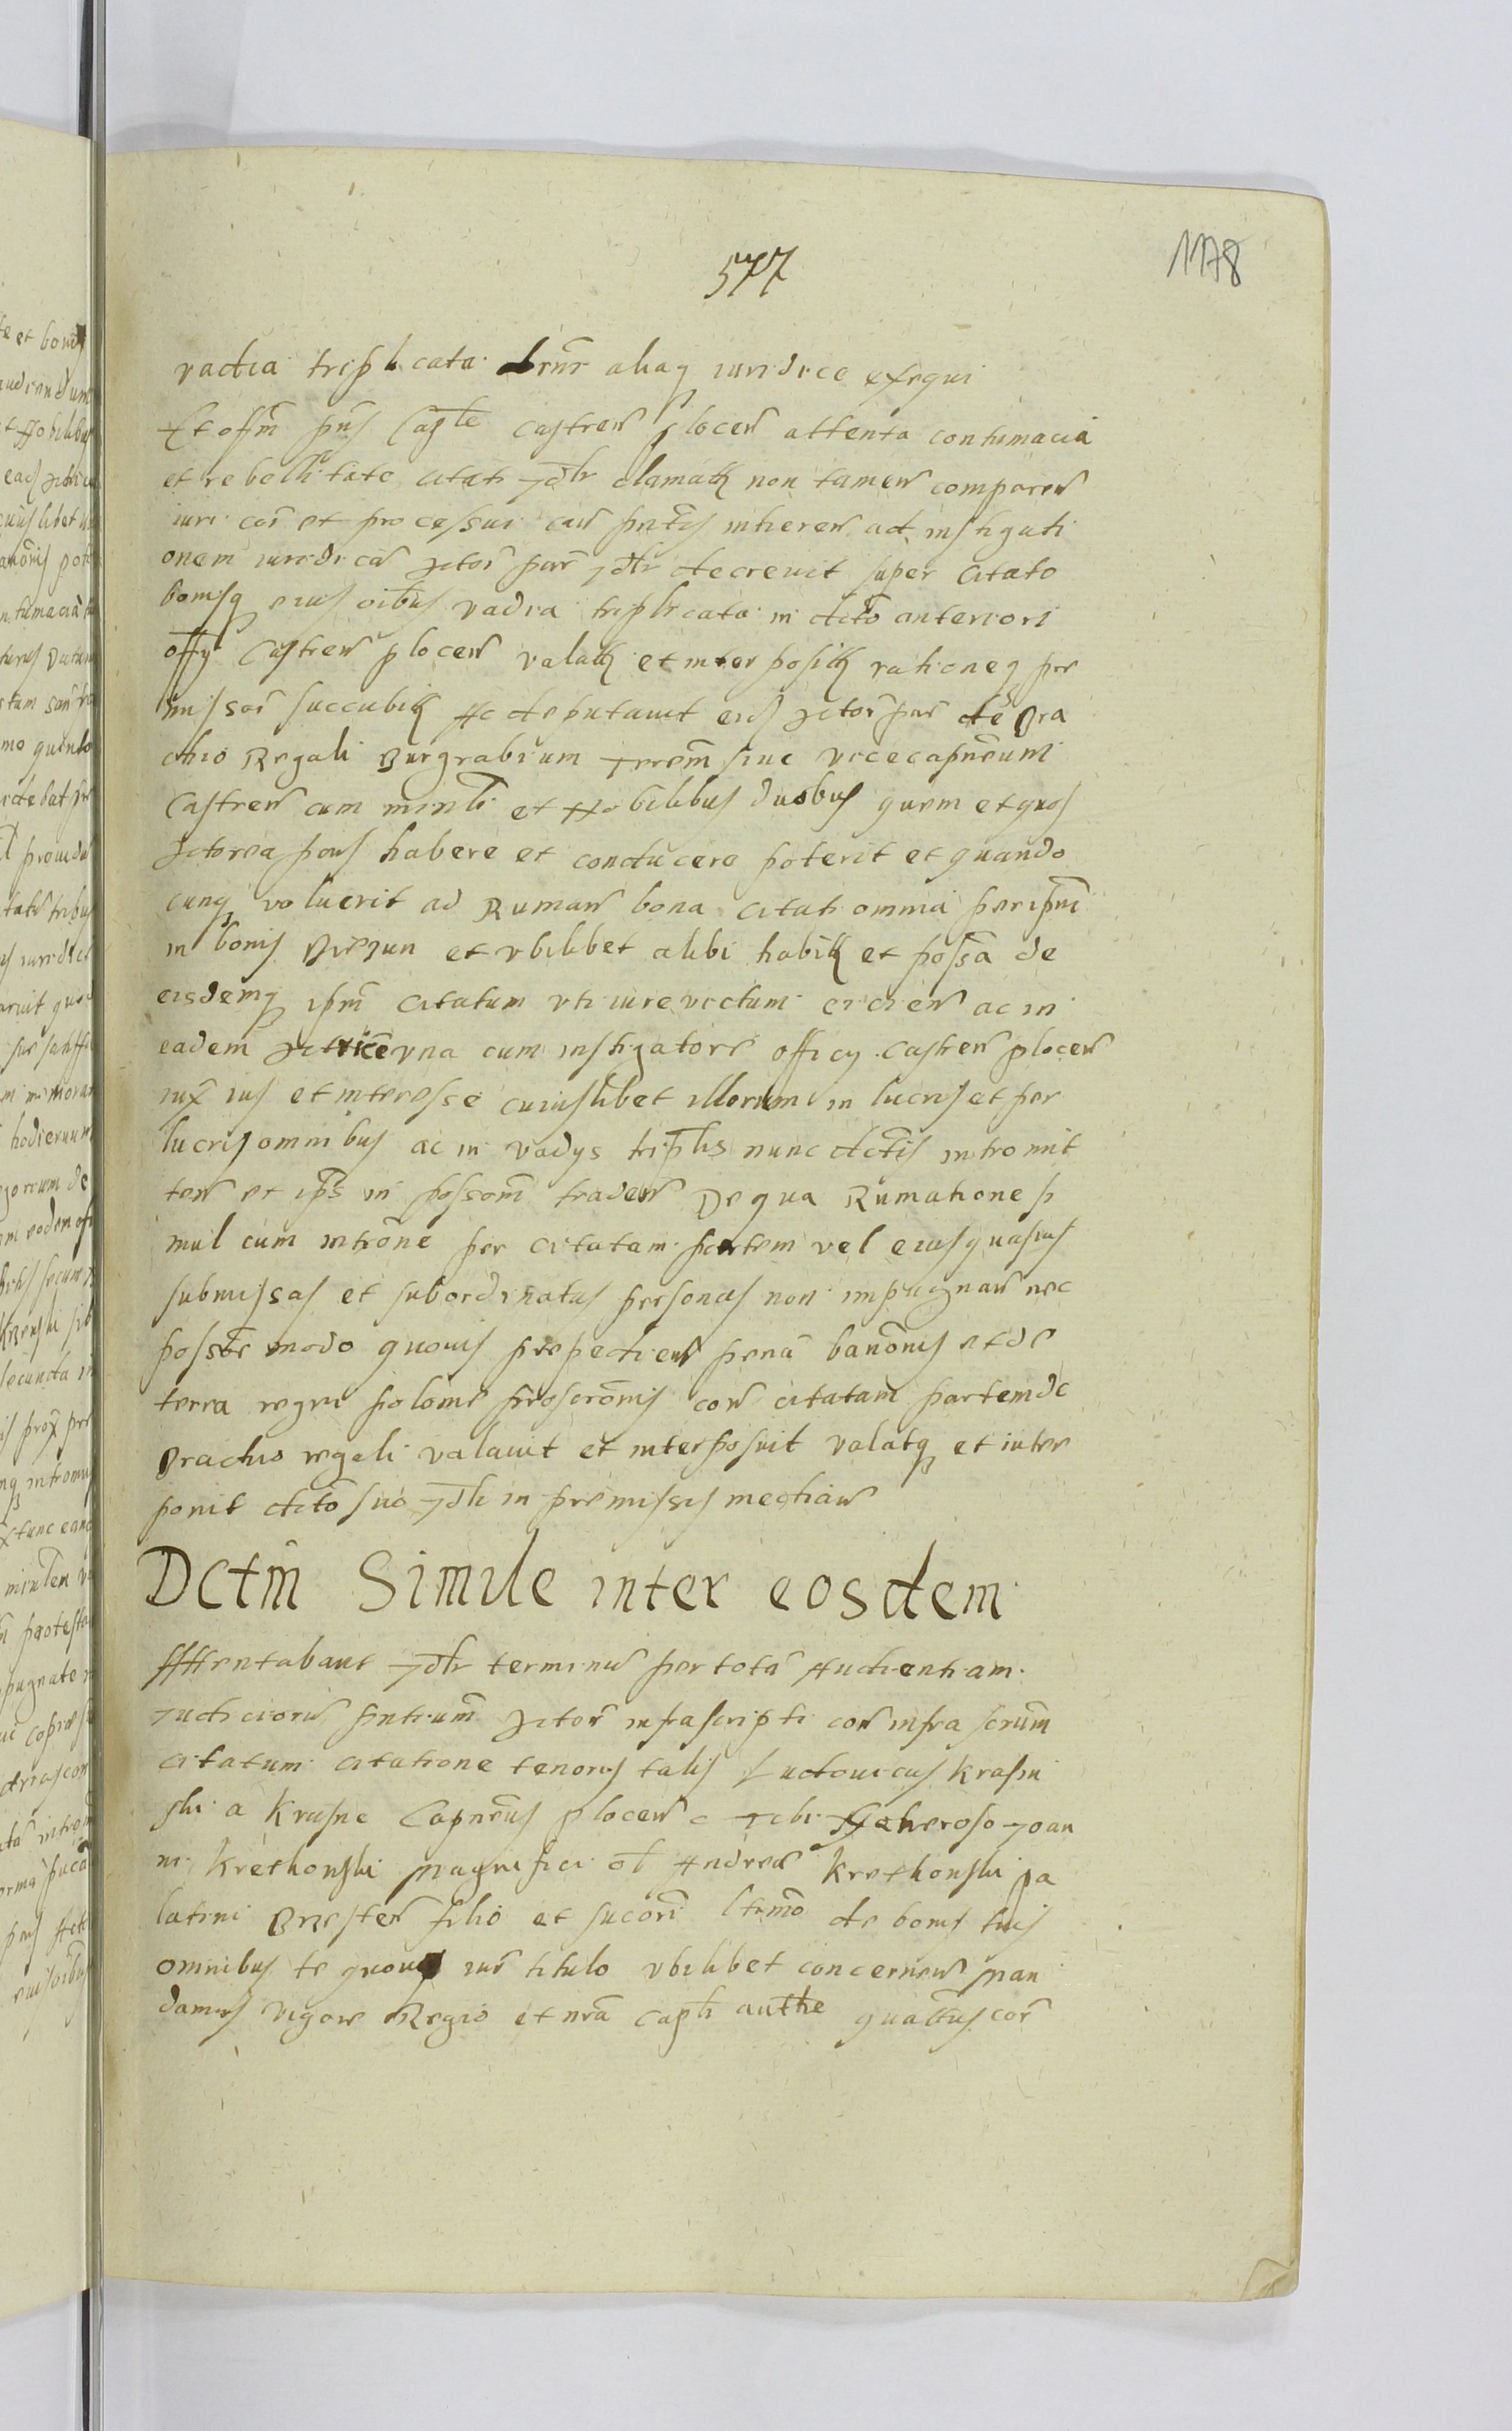 577
1178
vadia triplicata aliaq iuridice exequi
Et offm pns Caple castren plocen attenta contumacia
et rebellitate citati Jdlr clamati non tamen comparen
iuri cor et processui cur pntis inheren ad instigati
onem iuridica Actor par Jdlr decrevit super citato
bonisq eius oibus vadia triplicata in dcto anteriori
offy Castren plocen valati et interpositi rationeq pre
missor succubiti Ac deputavit eid Actor par de Bra
chio Regali Burgrabium Terrem sive vicecapneum
Castren cum minli et Nobilibus duobus quem et quos
Actorea pars habere et conducere poterit et quando
cunq voluerit ad Ruman bona citati omnia per ipm
in bonis Biezun et ubilibet alibi habiti et possa de
eisdemq ipm citatum uti iure victum eicien ac in
eadem Actrice una cum instigatore officy castren plocen
iux ius et interesse cuiuslibet illorum in lucris et per
lucris omnibus ac in vadys triplis nunc dctis intromit
ten et ips in possom traden De qua Rumatione si
mul cum introne per citatam partem vel eius quasvis
submissas et subordinatas personas non impugnan nec
postre modo quovis prepedien pena banonis et de
terra regni polonie proscronis con citatam partem de
Brachio regali valavit et interposuit valatq et inter
ponit dcto suo Jdli in premissis median
Dctm Simile inter eosdem
Affrentabant Jdlr terminu per tota Audientiam
Judicioru pntium Actor infrascripti con infra scrum
citatum citatione tenoris talis Ludovicus Krasin
ski a Krasne Capneus plocen c Tibi Generoso Joan
ni Kretkonski magnifici ol Andreae Kretkonski pa
latini Brzesten filio et sucori ltimo de bonis tuis
omnibus te quovis iur titulo ubilibet concernen man
damus vigore Regio et nra capli authe quatus cor